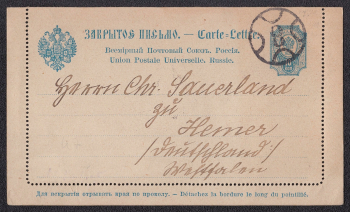 ЗАКРЫТОЕ ПИСЬМО. — Carte-Lettre
Всемірный Почтовый Союзъ. Россія.
Union Postale Universelle. Russie.
Herrn Chr. Sauerland
zu
Hemer
/Deutschland/
Westfalen
Для вскрытія оторвать края по проколу. — Détachez la bordure le long du pointillé.